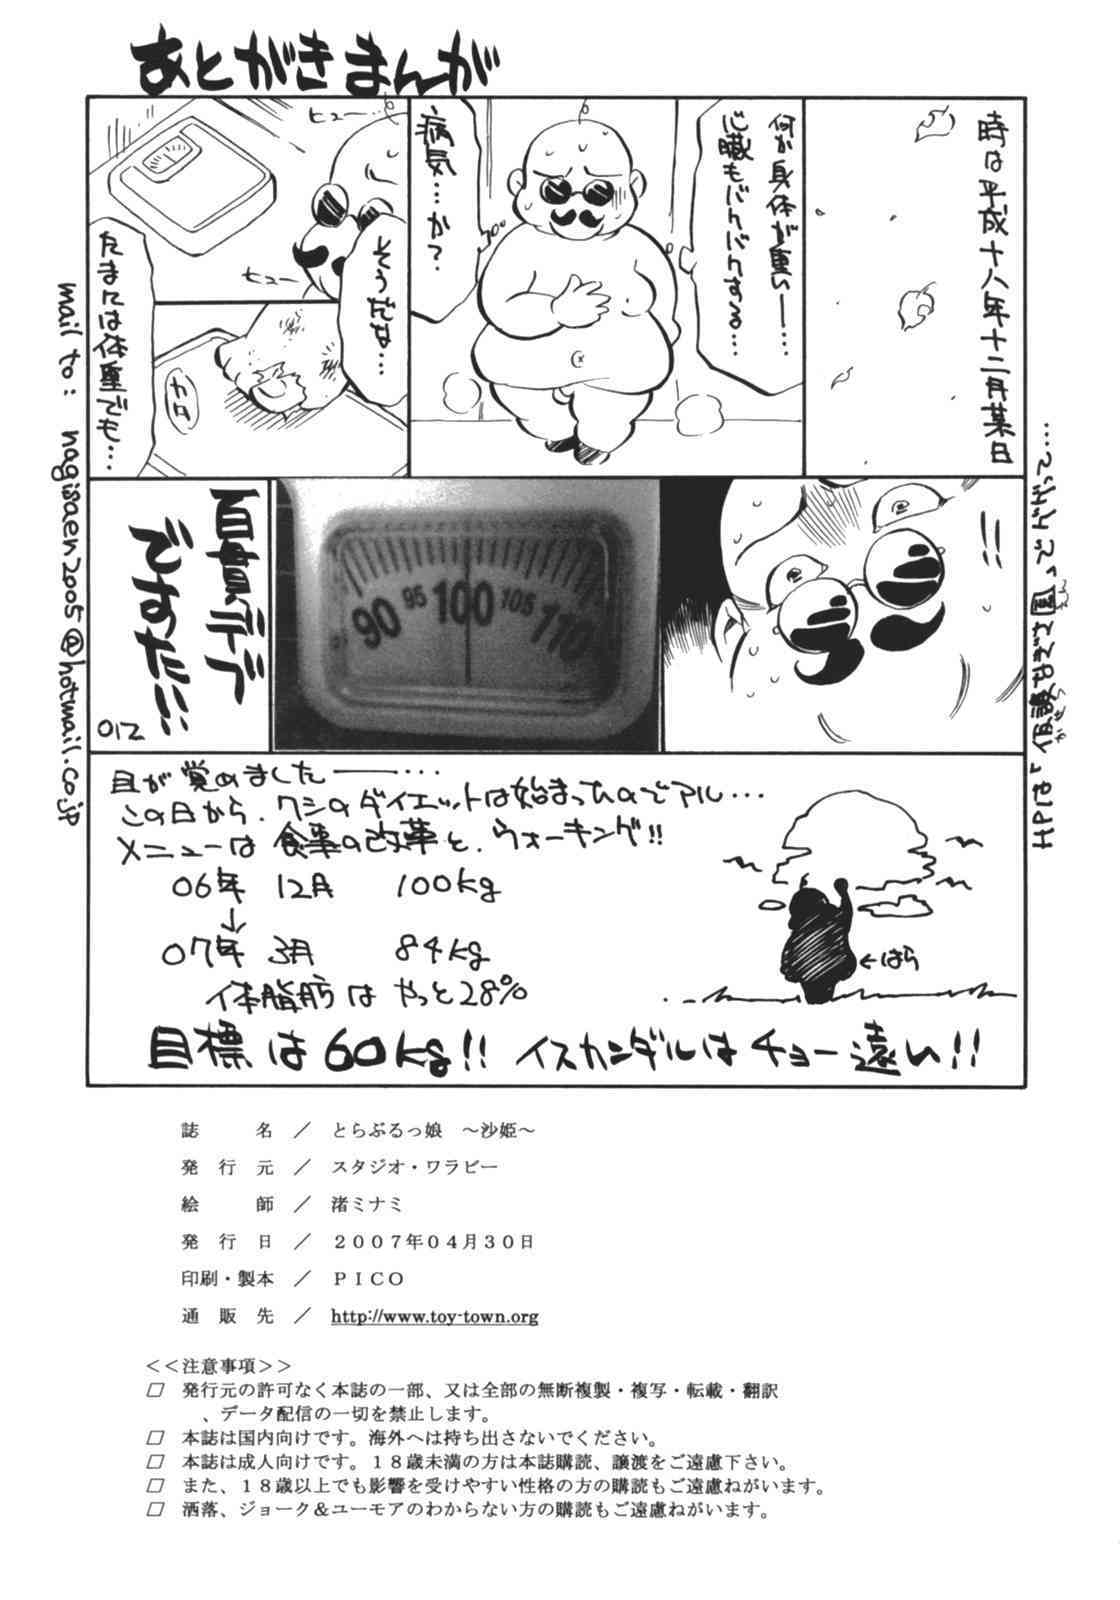 あとがきまんが
時は平成十八年十二月某日
何か身体が重い━…
心臓もバクバクする…
病気…か?
ヒュー…
そうだな…
ヒュー
たまには体重でも…
カタ
!!
90 95 100 105 110
百貫デブ
ですた!!!
012
目が覚めました━━…
この日から、ワシのダイエットは始まったのでアル…
メニューは食事の改革と、ウォーキング!!
06年 12月 100kg
↓
07年 3月 84kg
体脂肪はやっと28%
←はら
目標は60kg!! イスカンダルはチョー遠い!!
mail to: nagisaen2005@hotmail.co.jp
誌　名 ／ とらぶるっ娘 ～沙姫～
発行元 ／ スタジオ・ワラビー
絵　師 ／ 渚ミナミ
発行日 ／ ２００７年０４月３０日
印刷・製本 ／ ＰＩＣＯ
通販先 ／ http://www.toy-town.org
<<注意事項>>
□ 発行元の許可なく本誌の一部、又は全部の無断複製・複写・転載・翻訳
、データ配信の一切を禁止します。
□ 本誌は国内向けです。海外へは持ち出さないでください。
□ 本誌は成人向けです。１８歳未満の方は本誌購読、譲渡をご遠慮下さい。
□ また、１８歳以上でも影響を受けやすい性格の方の購読もご遠慮ねがいます。
□ 洒落、ジョーク＆ユーモアのわからない方の購読もご遠慮ねがいます。